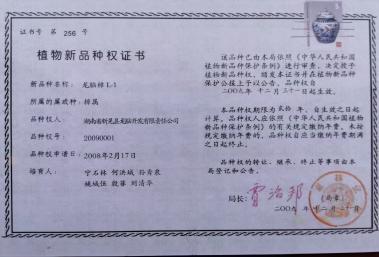 证书号 第 256 号
植物新品种权证书
新品种名称：龙脑樟L-1
所属的属或种：樟属
品种权人：湖南省新晃县龙脑开发有限责任公司
品种权号：20090001
品种权申请日：2008年2月17日
培育人：宁石林 何洪城 孙秀泉
姚城伍 殷菲 刘清华
该品种已由本局依照《中华人民共和国
植物新品种保护条例》进行审查，决定授予
植物新品种权，颁发本证书并在植物新品种
保护公报上予以公告。品种权自
二00九年十二月三十一日起生效。
本品种权期限为贰拾年，自生效之日起
计算。品种权人应依照《中华人民共和国植物新
品种保护条例》的有关规定缴纳年费。未按
规定缴纳年费的，品种权自应当缴纳年费期满
之日起终止。
品种权的转让、继承、终止等事项由本
局登记和公告。
局长：贾治邦 （局章）
二00九年十二月三十一日